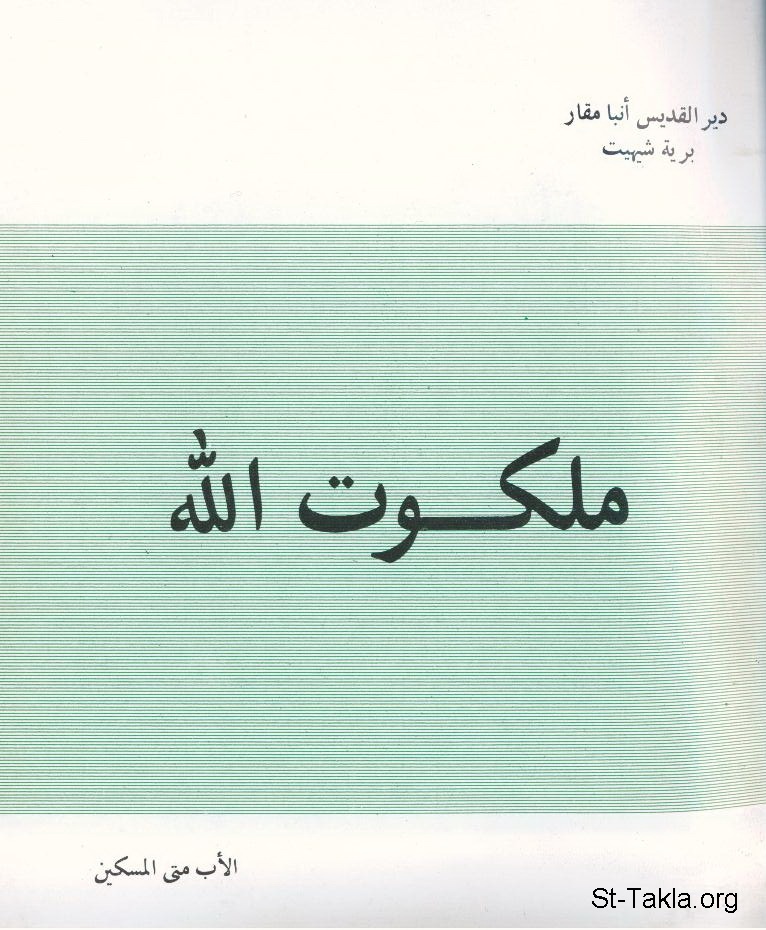 دير القديس أنبا مقار
برية شيهيت
ملكوت الله
الأب متى المسكين
St-Takla.org